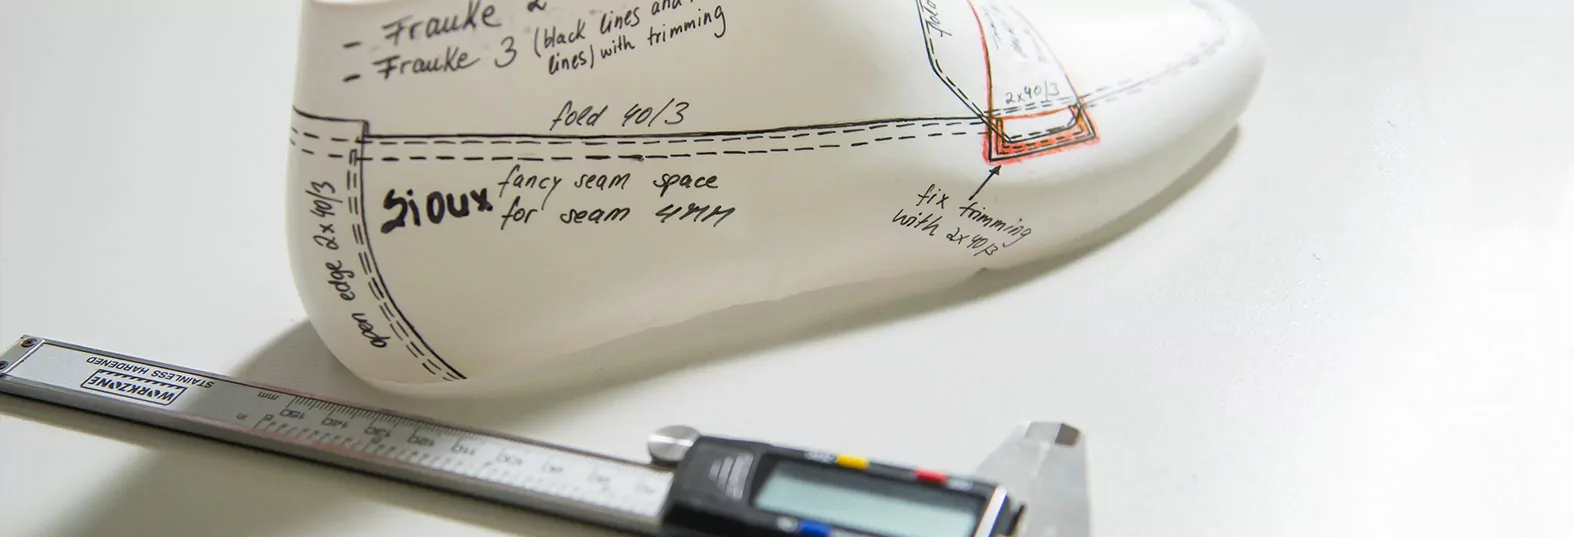 - Frauke 2
- Frauke 3 (black lines and
lines) with trimming
fold 40/3
Sioux
fancy seam space
for seam 4MM
open edge 2x40/3
fold
2x40/3
fix trimming
with 2x40/3
WORKZONE
STAINLESS HARDENED
mm
in
150 140 130 120 110 100 90 80 70